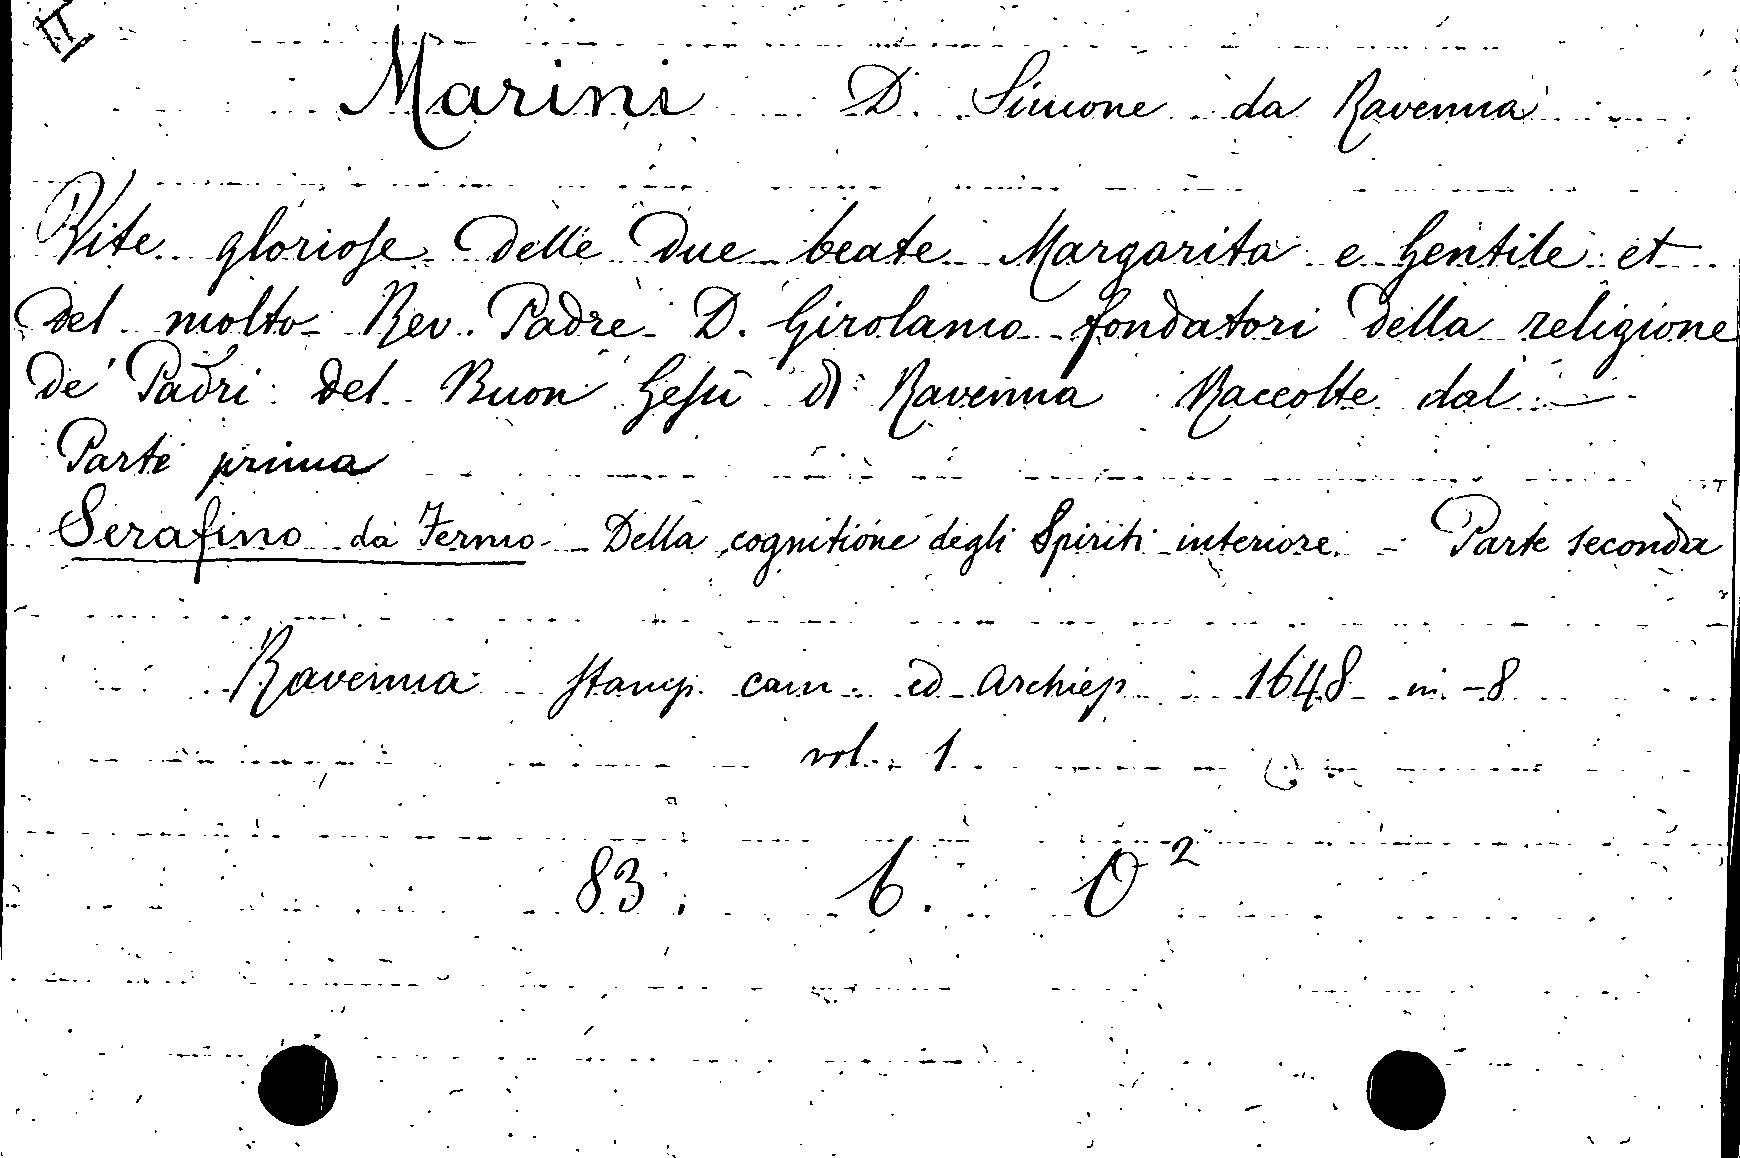 II
Marini D. Simone da Ravenna
Vite gloriose delle due beate Margarita e Gentile et
del molto Rev. Padre D. Girolamo fondatori della religione
de' Padri del Buon Gesù di Ravenna Raccolte dal —
Parte prima
Serafino da Fermo - Della cognitione degli Spiriti interiore - Parte seconda
Ravenna Stamp. cam. ed Archiep. 1648 in-8
vol. 1
83. 6. O²